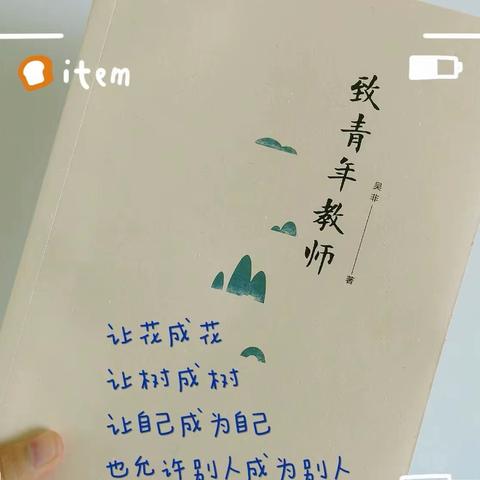 item
致青年教师
吴非
著
让花成花
让树成树
让自己成为自己
也允许别人成为别人